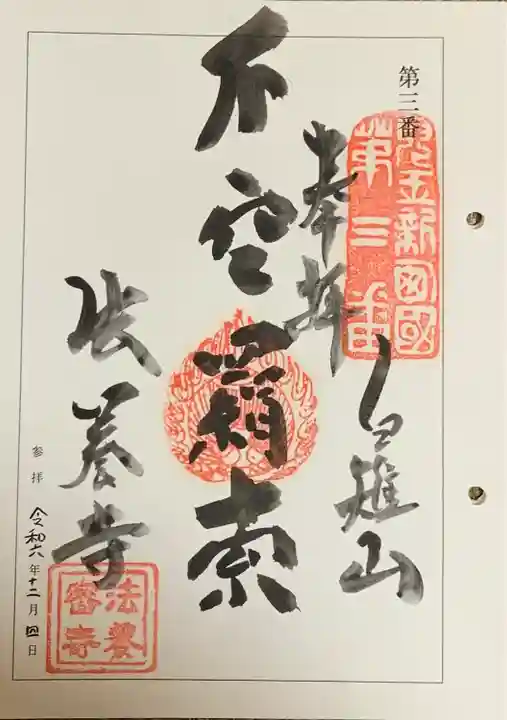 第三番
兒玉新四國
第三番
奉拝
白雉山
不空羂索
法養寺
法養
密寺
参拝 令和六年十二月四日